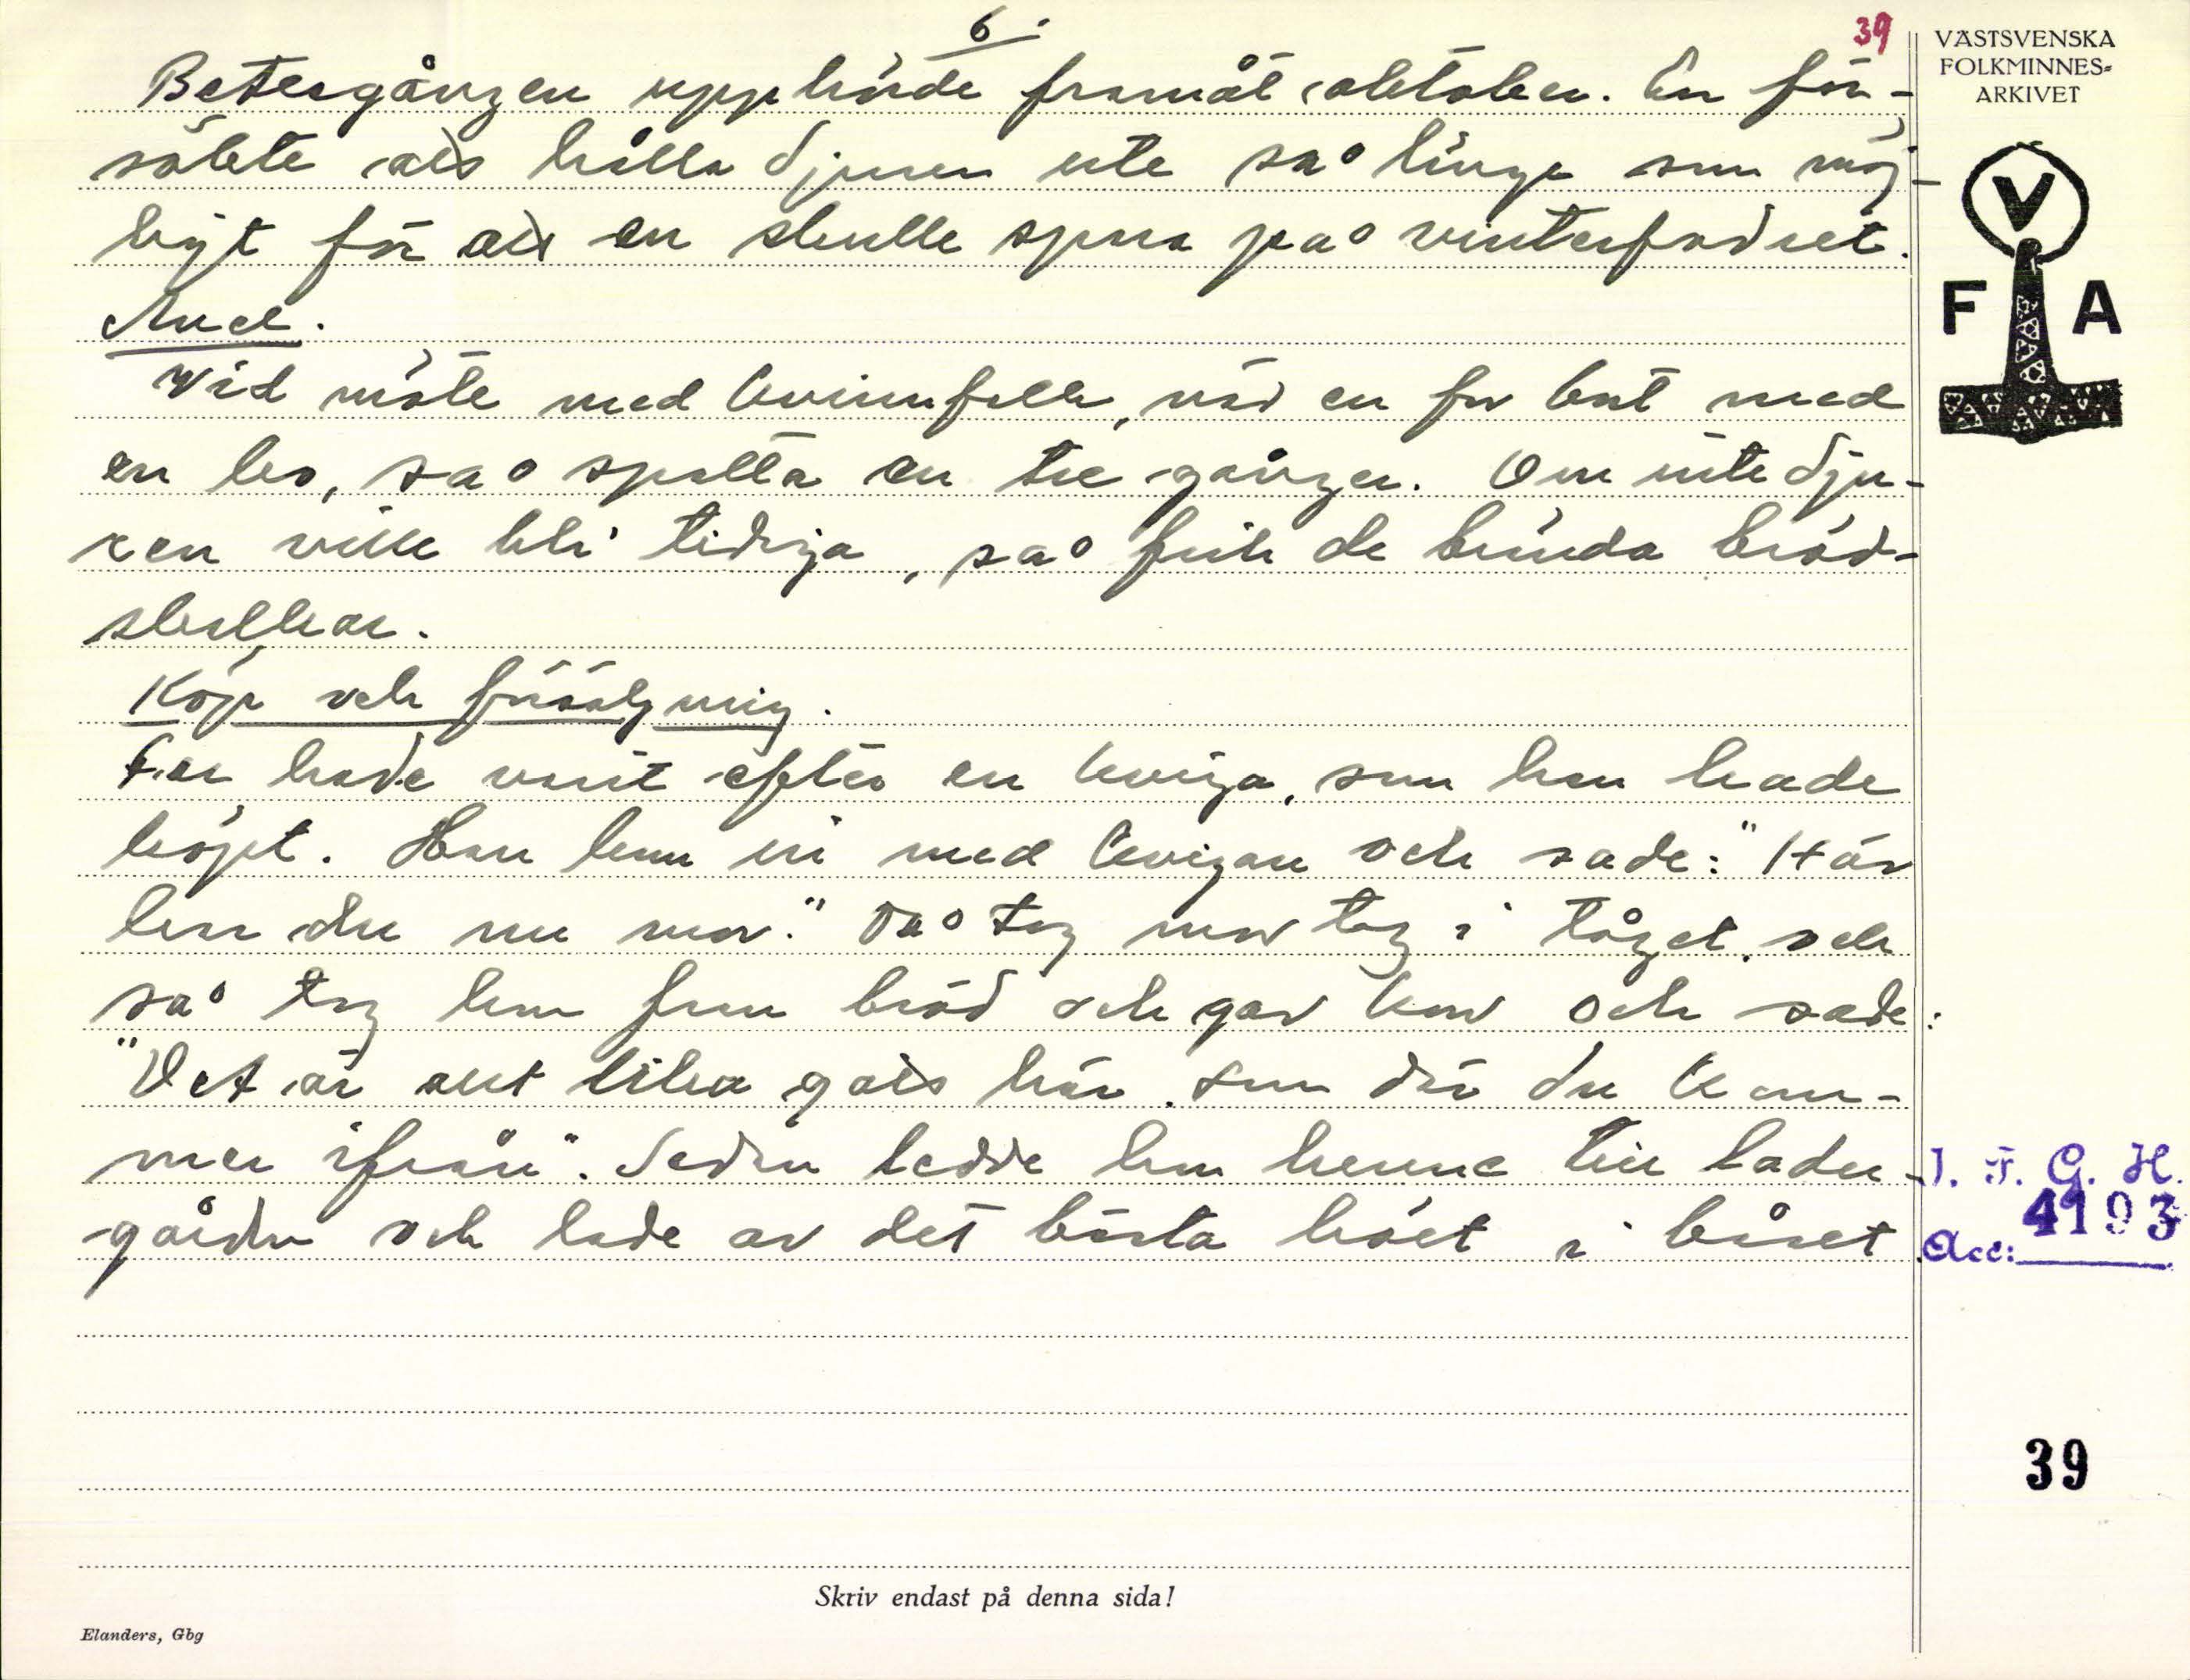 6.
39
VÄSTSVENSKA
FOLKMINNES-
ARKIVET
V
F A
Betesgången upphörde framåt oktober. En för-
sökte att hålla djuren ute så länge som möj-
ligt för att en skulle spara på vinterfodret.
Avel.
Vid möte med kvinnfolk, när en for bort med
en ko, så spotta en tre gånger. Om inte dju-
ren ville bli tidiga, så fick de brända bröd-
skulkar.
Köp och försäljning.
Far hade varit efter en kviga, som han hade
köpt. Han kom in med kvigan och sade: "Här
har du nu mor." Då tog mor tag i tåget, och
så tog hon fram bröd och gav kon och sade:
"Det är allt lika gott här som där du kom-
mer ifrån". Sedan ledde hon henne till ladu-
gården och lade av det bästa höet i båset.
I. F. G. H.
Acc: 4193
39
Skriv endast på denna sida!
Elanders, Gbg